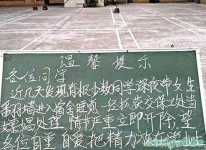 温馨提示
各位同学
近几天发现有极少数同学深夜带女生
翻围墙进入宿舍睡觉，一经抓获交保卫处当
嫖娼处理，情节严重立即开除，望
各位自重自爱把精力放在学业上